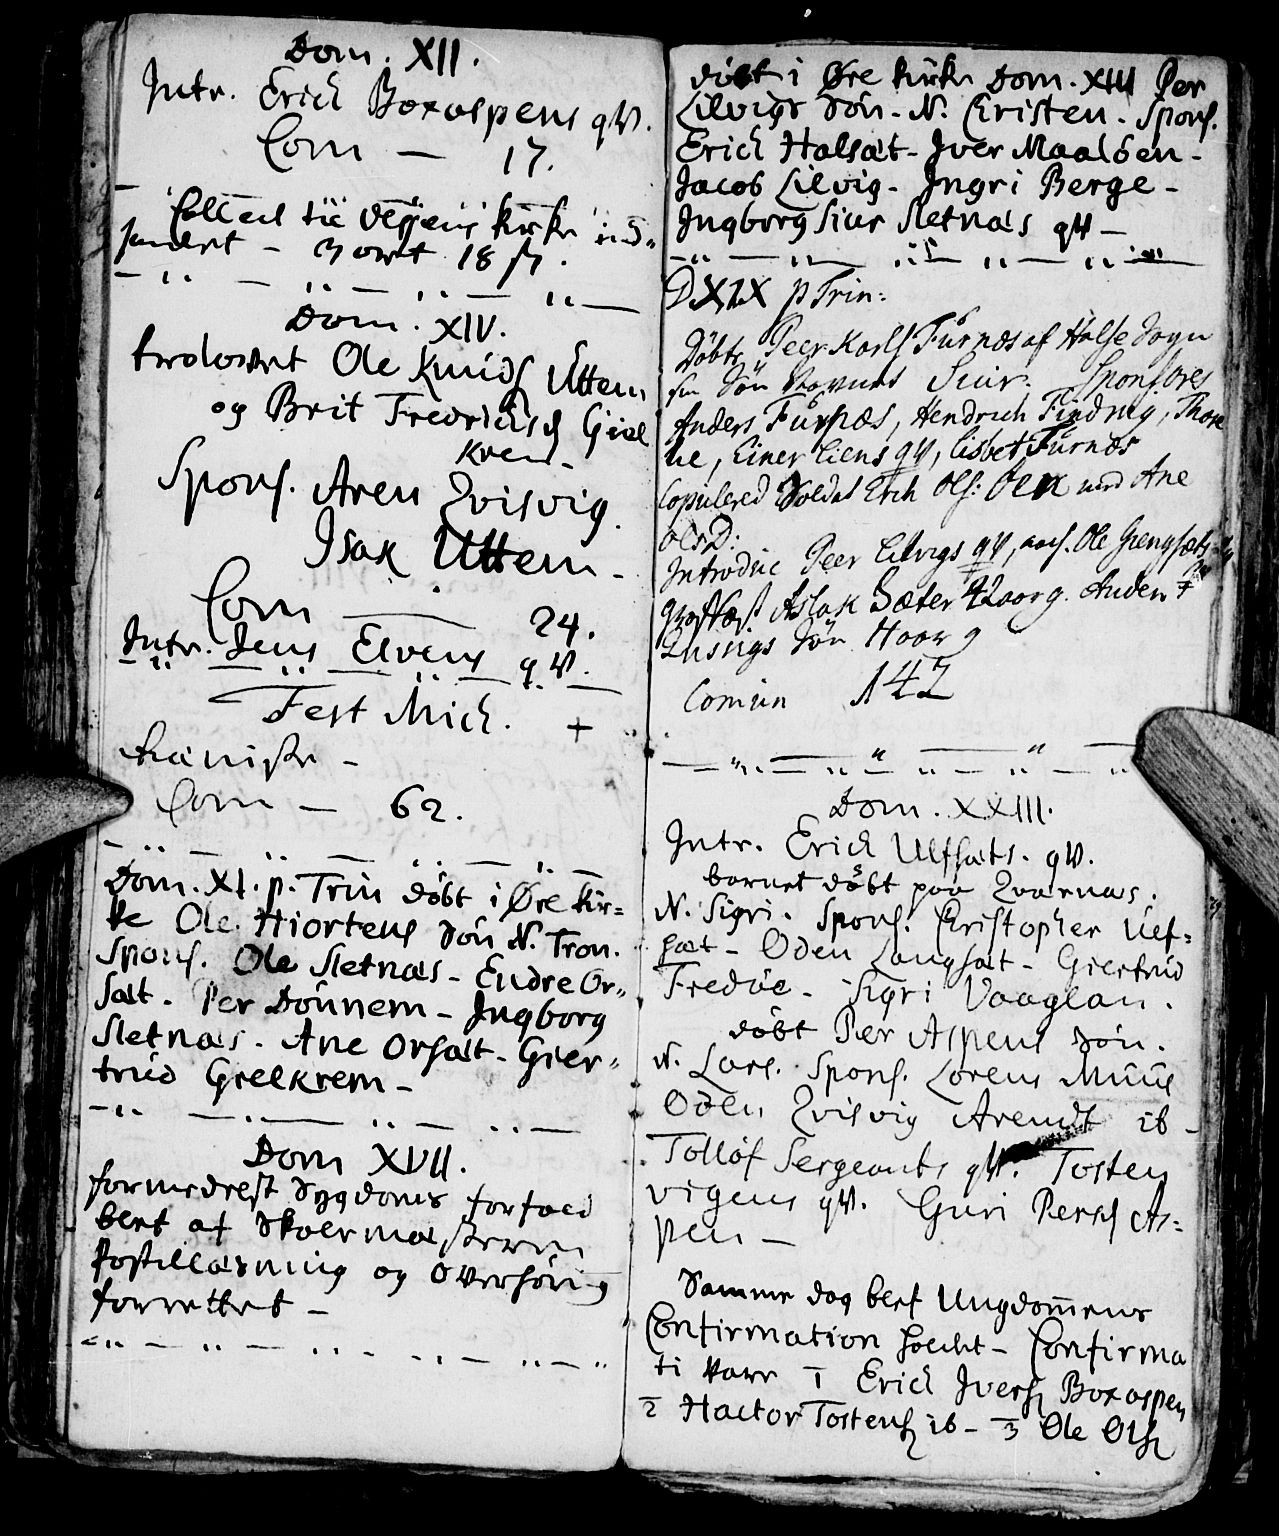 Dom. XII.
Intr. Erich Boxaspens qV.
Com — 17.
Collect til Vejens kirke ind-
samlet — 3 ort 18 s.
Dom. XIV.
trolovet Ole Knuds Uttem
og Brit Fredrichsd Giel
krem.
Spons. Aren Qvisvig.
Isak Uttem.
Com — 24.
Intr. Jens Elvens qV.
Fest Mich. +
Com — 62.
Dom. XI. p. Trin døbt i Øre kir=
ke Ole Hiortens Søn N. Tron.
Spons. Ole Sletnæs - Endre Or=
sæt. Per Dønnem - Ingborg
Sletnæs. Ane Orsæt - Gier=
trud Greelkrem -
Dom XVII.
formedelst Sygdoms forfald
blef af Skolemesteren
Postillæsning og Overhøring
forrettet -
døbt i Øre kirke Dom. XIII Per
Lilvigs Søn - N. Cristen. Spons.
Erich Halsæt - Iver Maaløen -
Jacob Lilvig - Ingri Berge -
Ingborg Siur Sletnæs qV -
D. XIX p Trin:
Døbte Peer Karls Furnæs af Halse Sogn
sin Søn Siur. Sponsores
Anders Furnæs, Hendrich, Thore
Einer Liens qV, Lisbet Furnæs
Copulered Soldat Erch Ols: Oen med Ane
OlsD:
Introduc Peer Lilvigs qV, Ole Giengsæts
Aslak Sæter Anden
Søn Haavg
Comun 142
Dom. XXIII.
Intr. Erich Ulfsæts. qV.
barnet døbt paa Qvarnæs.
N. Sigri. Spons. Cristopher Ulf=
sæt - Oden Langsæt - Giertrud
Fredøe - Sigri Vaaglan.
døbt Per Aspens Søn.
N. Lars. Spons. Lorens Muus
Oden Qvisvig Arendt ib -
Tolløf Sergeants qV. Tosten
vigens qV. Guri Persd As=
pen -
Samme dag blef Ungdommens
Confirmation holdt - Confirma
ti vare 1 Erich Ivers Boxaspen
2 Hactor Tostens ib - 3 Ole Ols